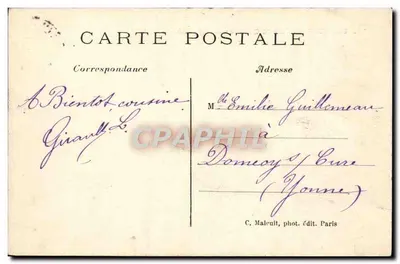 CARTE POSTALE
Correspondance
Adresse
A Bientot cousine
Girault L
Mlle Emilie Guillemeau
à
Domecy s/ Cure
(Yonne)
CPAPHIL
C. Maleuit, phot. édit. Paris